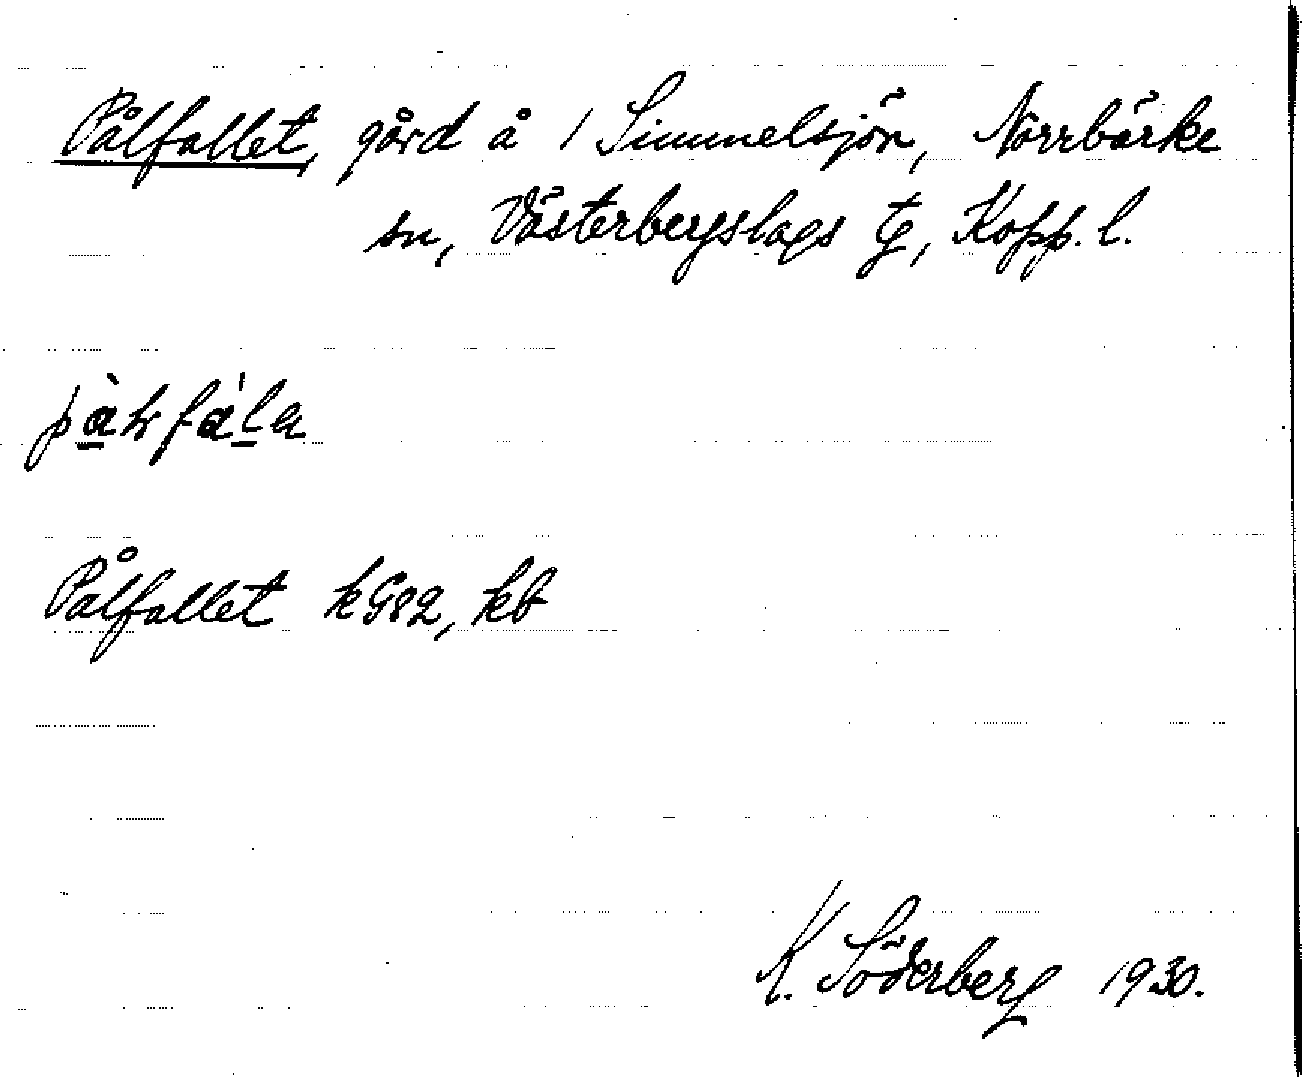 Pålfallet, gård å / Simmelsjön, Norrbärke
sn, Västerbergslags tg, Kopp. l.
Pålfallet kG82, kb
K. Söderberg 1930.